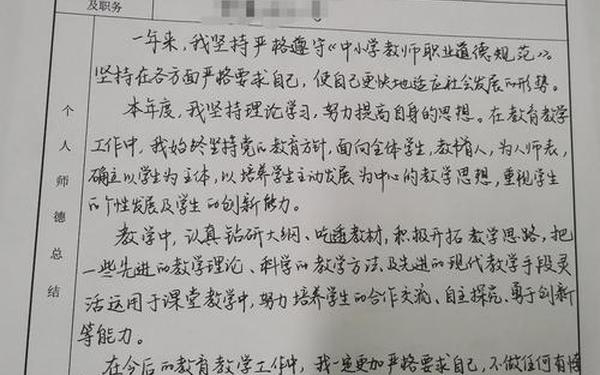 及职务
一年来，我坚持严格遵守《中小学教师职业道德规范》。
坚持在各方面严格要求自己，使自己更快地适应社会发展的形势。
本年度，我坚持理论学习，努力提高自身的思想。在教育教学
工作中，我始终坚持党的教育方针，面向全体学生，教书育人，为人师表，
确立以学生为主体，以培养学生主动发展为中心的教学思想，重视学生
的个性发展及学生的创新能力。
教学中，认真钻研大纲、吃透教材，积极开拓教学思路，把
一些先进的教学理论、科学的教学方法及先进的现代教学手段灵
活运用于课堂教学中，努力培养学生的合作交流、自主探究、勇于创新
等能力。
在今后的教育教学工作中，我一定更加严格要求自己，不做任何有悖
个人师德总结